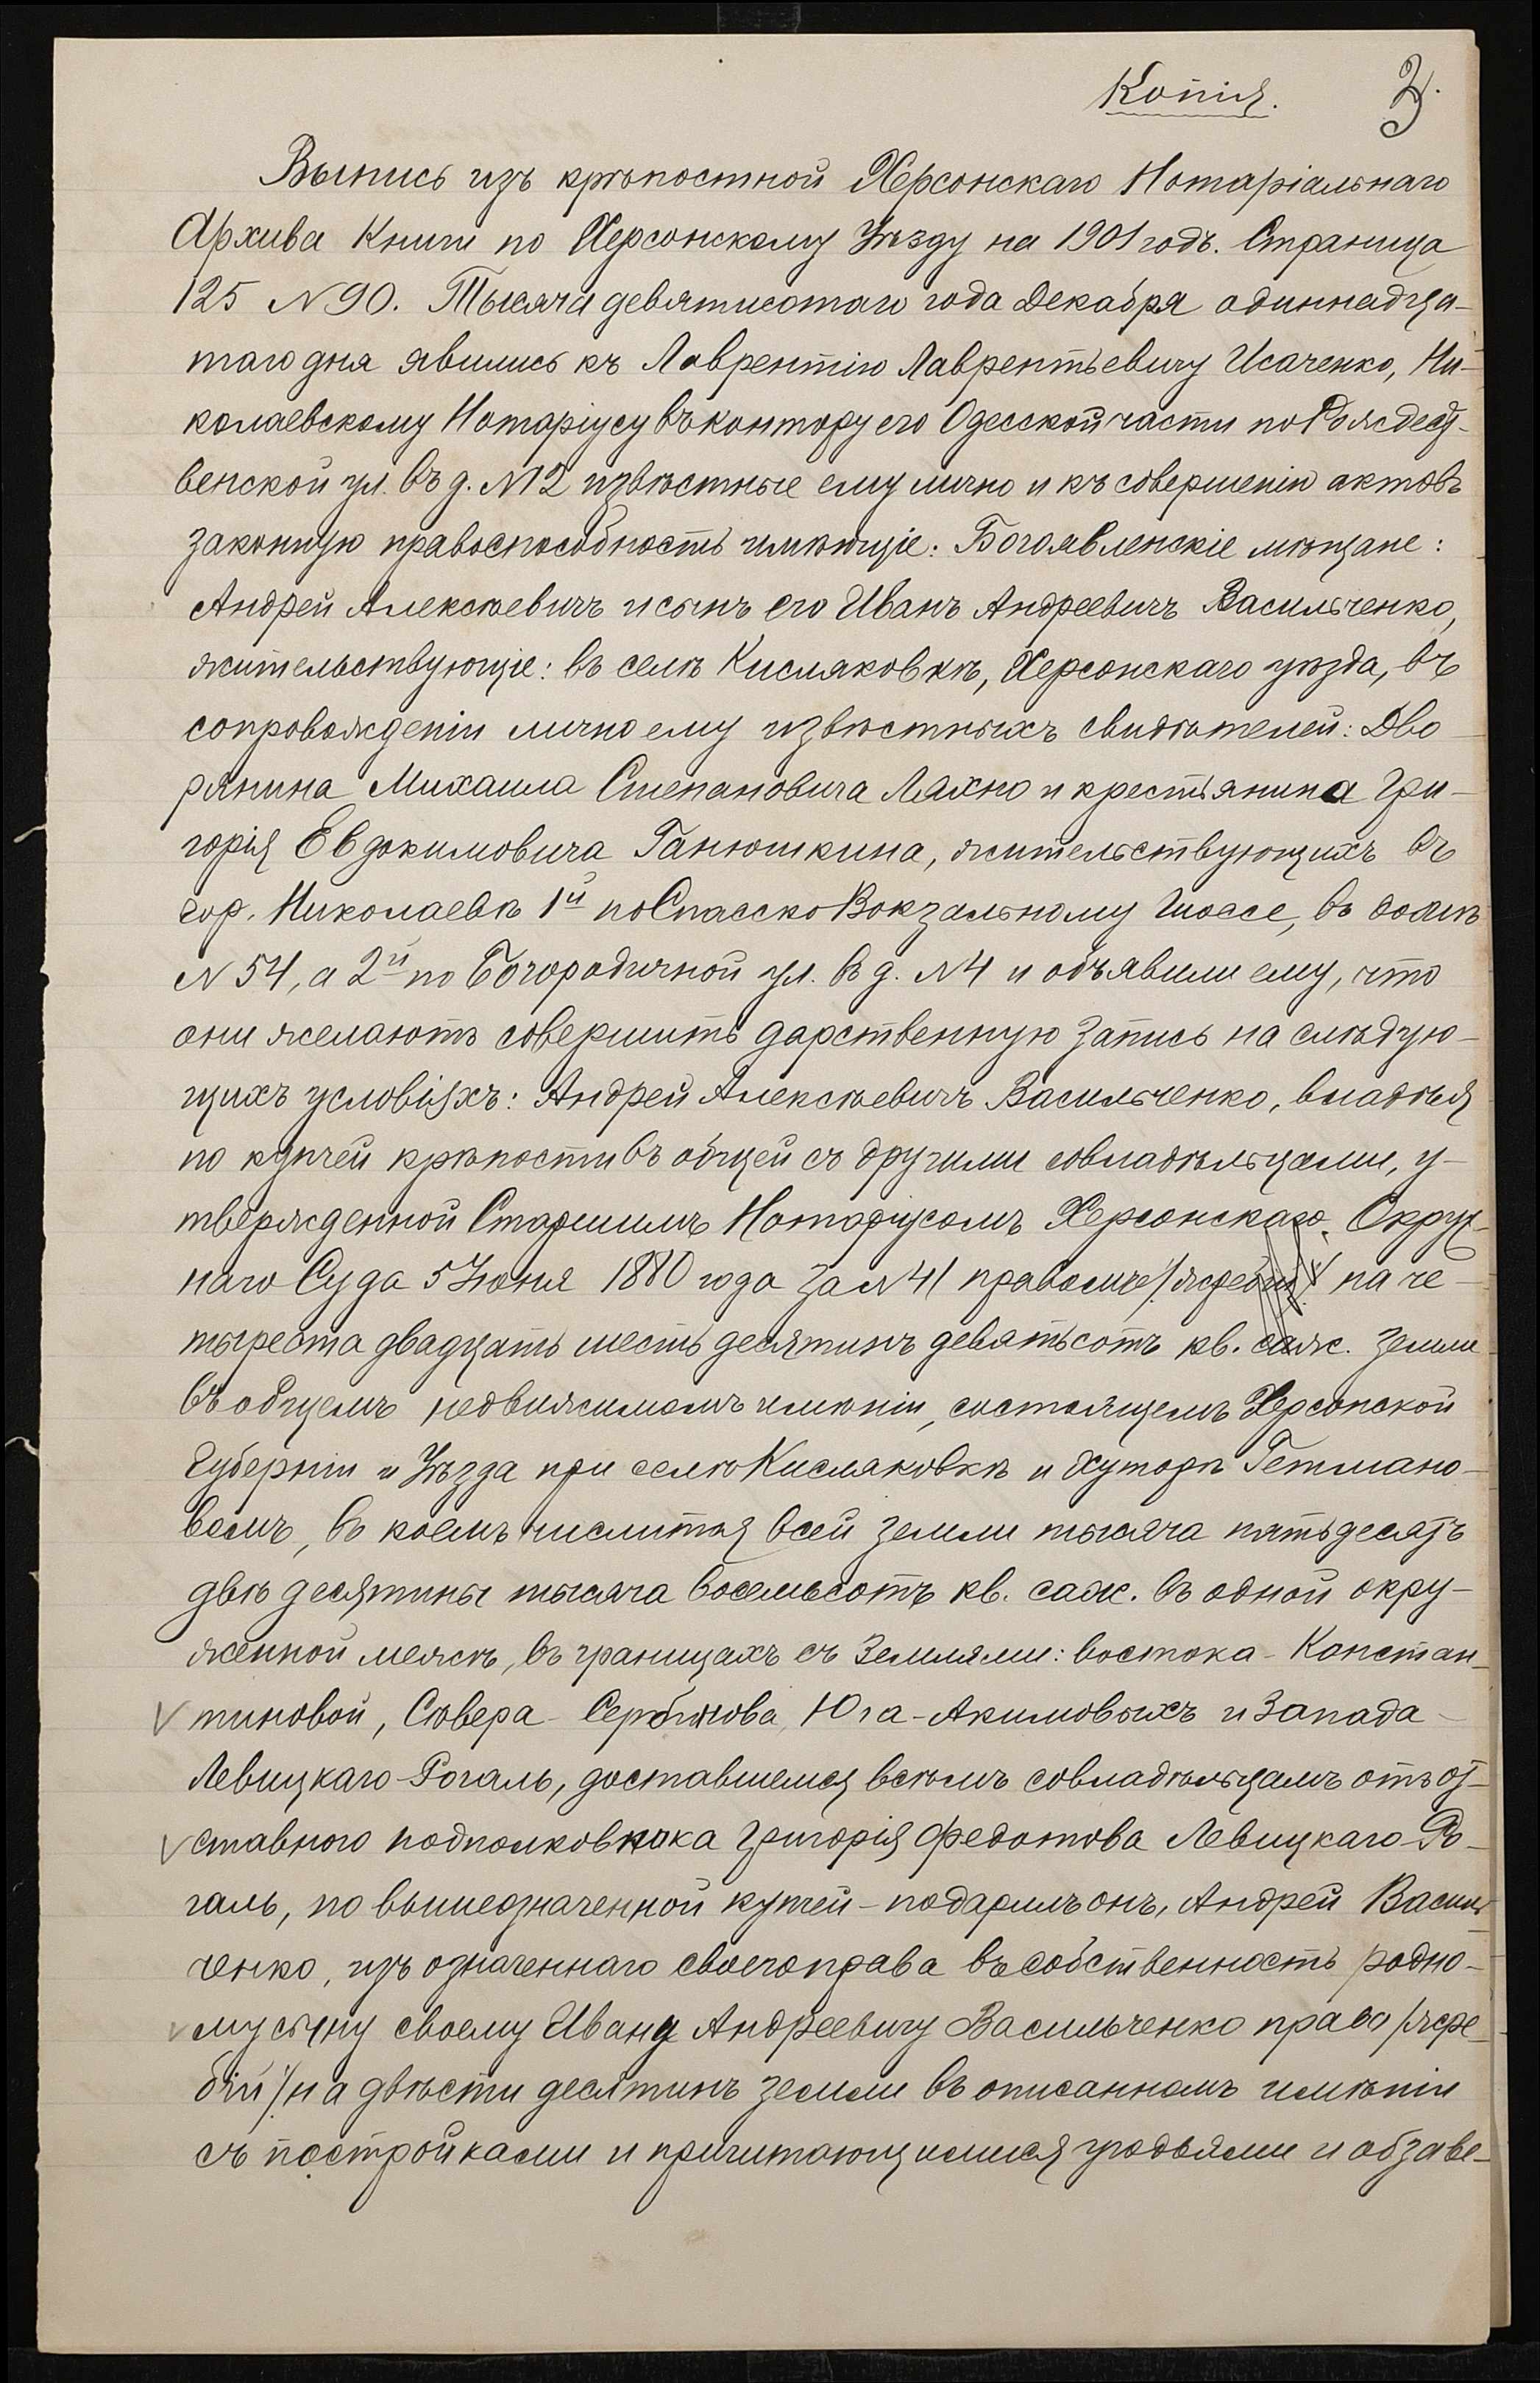 Копія. 3.
Выпись изъ крѣпостной Херсонскаго Нотаріальнаго
Архива Книги по Херсонскому Уѣзду на 1901 годъ. Страница
125 N 90. Тысяча девятисотаго года Декабря одиннадца-
таго дня явились къ Лаврентію Лаврентьевичу Исаченко, Ни-
колаевскому Нотаріусу въ контору его Одесской части по Рождест-
венской ул. въ д. N 12 извѣстные ему лично и къ совершенію актовъ
законную правоспособность имѣющіе: Богоявленскіе мѣщане:
Андрей Алексѣевичъ и сынъ его Иванъ Андреевичъ Васильченко,
жительствующіе: въ селѣ Кисляковкѣ, Херсонскаго уѣзда, въ
сопровожденіи лично ему извѣстныхъ свидѣтелей: Дво-
рянина Михаила Степановича Ляхно и крестьянина Гри-
горія Евдокимовича Ганюшкина, жительствующихъ въ
гор. Николаевѣ 1й по Спасско Вокзальному шоссе, въ домѣ
N 54, а 2й по Богородичной ул. въ д. N 4 и объявили ему, что
они желаютъ совершить дарственную запись на слѣдую-
щихъ условіяхъ: Андрей Алексѣевичъ Васильченко, владѣя
по купчей крѣпости въ общей съ другими совладѣльцами, у-
твержденной Старшимъ Нотаріусомъ Херсонскаго Окруж-
наго Суда 5 Іюня 1880 года за N 41 правомъ /жребій/ на че-
тыреста двадцать шесть десятинъ девятьсотъ кв. саж. земли
въ общемъ недвижимомъ имѣніи, состоящемъ Херсонской
Губерніи и Уѣзда при селѣ Кисляковкѣ и Хуторѣ Гетмано-
вомъ, въ коемъ числится всей земли тысяча пятьдесятъ
двѣ десятины тысяча восемьсотъ кв. саж. въ одной окру-
женной межѣ, въ границахъ съ землями: востока - Констан-
тиновой, Сѣвера - Сербинова, Юга - Акимовыхъ и Запада -
Левицкаго-Рогаль, доставшемся всѣмъ совладѣльцамъ отъ от-
ставного подполковника Григорія Федотова Левицкаго-Ро-
галь, по вышеозначенной купчей - подарилъ онъ, Андрей Василь-
ченко, изъ означеннаго своего права въ собственность родно-
му сыну своему Ивану Андреевичу Васильченко право /жре-
бій/ на двѣсти десятинъ земли въ описанномъ имѣніи
съ постройками и причитающимися угодьями и обзаве-